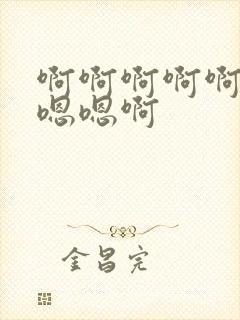 啊啊啊啊啊
嗯嗯啊
金昌完